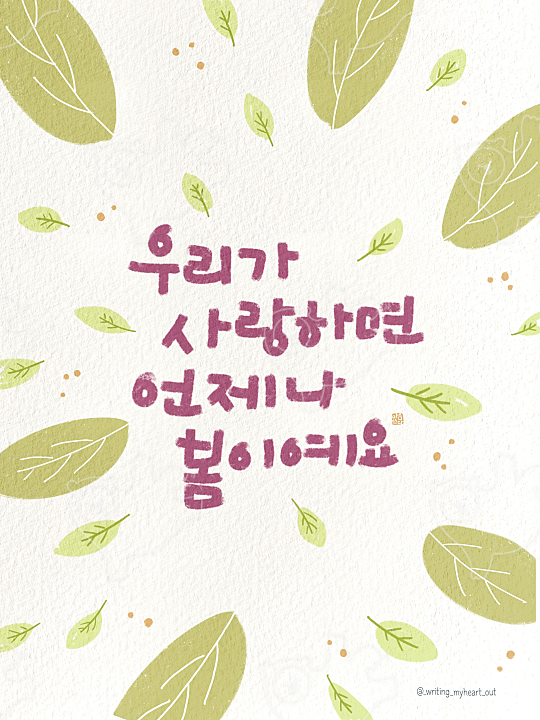 우리가
사랑하면
언제나
봄이예요
@_writing_myheart_out